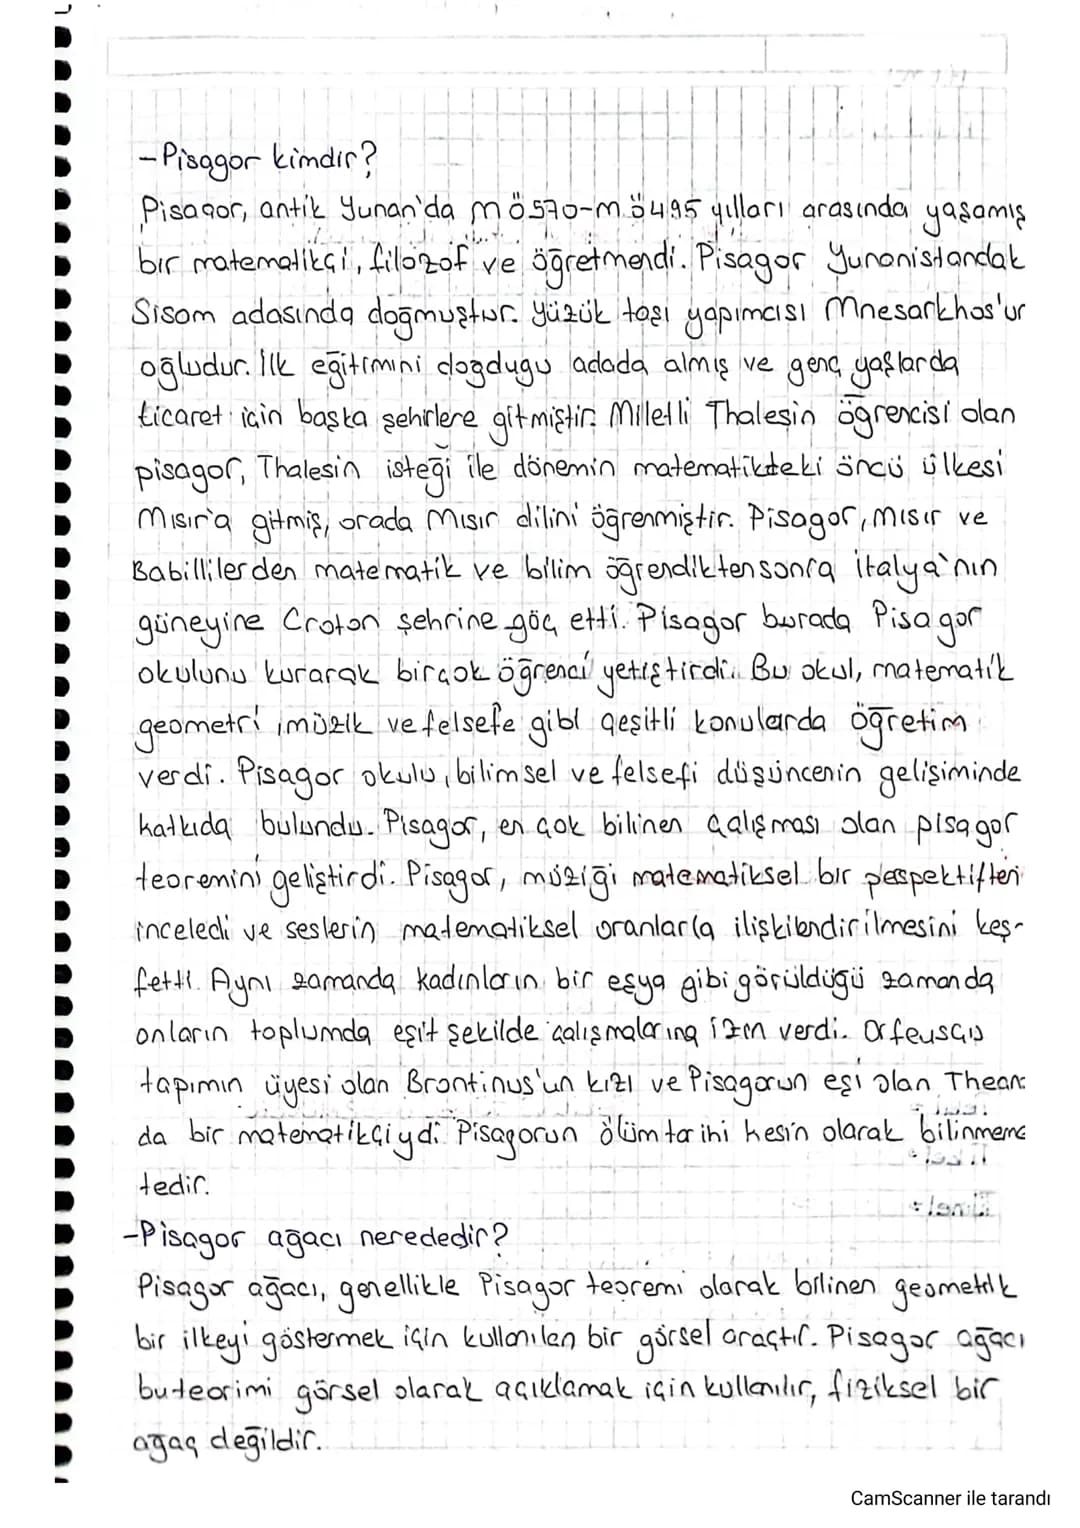 -Pisagor kimdir?
Pisagor, antik Yunan'da mö570-m.ö495 yılları arasında yaşamış
bir matematikçi, filozof ve öğretmendi. Pisagor Yunanistandak
Sisam adasında doğmuştur. Yüzük taşı yapımcısı Mnesarkhos'un
oğludur. İlk eğitimini dogdugu adada almış ve genç yaşlarda
ticaret için başka şehirlere gitmiştir. Milletli Thalesin öğrencisi olan
pisagor, Thalesin isteği ile dönemin matematikteki öncü ülkesi
Mısır'a gitmiş, orada Mısır dilini öğrenmiştir. Pisagor, mısır ve
Babillilerden matematik ve bilim öğrendikten sonra İtalya'nın
güneyine Croton şehrine göç etti. Pisagor burada Pisagor
okulunu kurarak birçok öğrenci yetiştirdi. Bu okul, matematik
geometri, müzik ve felsefe gibi çeşitli konularda öğretim
verdi. Pisagor okulu, bilimsel ve felsefi düşüncenin gelişiminde
katkıda bulundu. Pisagor, en çok bilinen çalışması olan pisagor
teoremini geliştirdi. Pisagor, müziği matematiksel bir pespektiften
inceledi ve seslerin matematiksel oranlarla ilişkilendirilmesini keş-
fetti. Aynı zamanda kadınların bir eşya gibi görüldüğü zamanda
onların toplumda eşit şekilde çalışmalarına izin verdi. Orfeusçıs
tapımın üyesi olan Brontinus'un kızı ve Pisagorun eşi olan Thean
da bir matematikçiydi. Pisagorun ölüm tarihi kesin olarak bilinmeme
tedir.
-Pisagor ağacı nerededir?
Pisagor ağacı, genellikle Pisagor teoremi olarak bilinen geometrik
bir ilkeyi göstermek için kullanılan bir görsel araçtır. Pisagor ağacı
bu teorimi görsel olarak açıklamak için kullanılır, fiziksel bir
ağaç değildir.
CamScanner ile tarandı